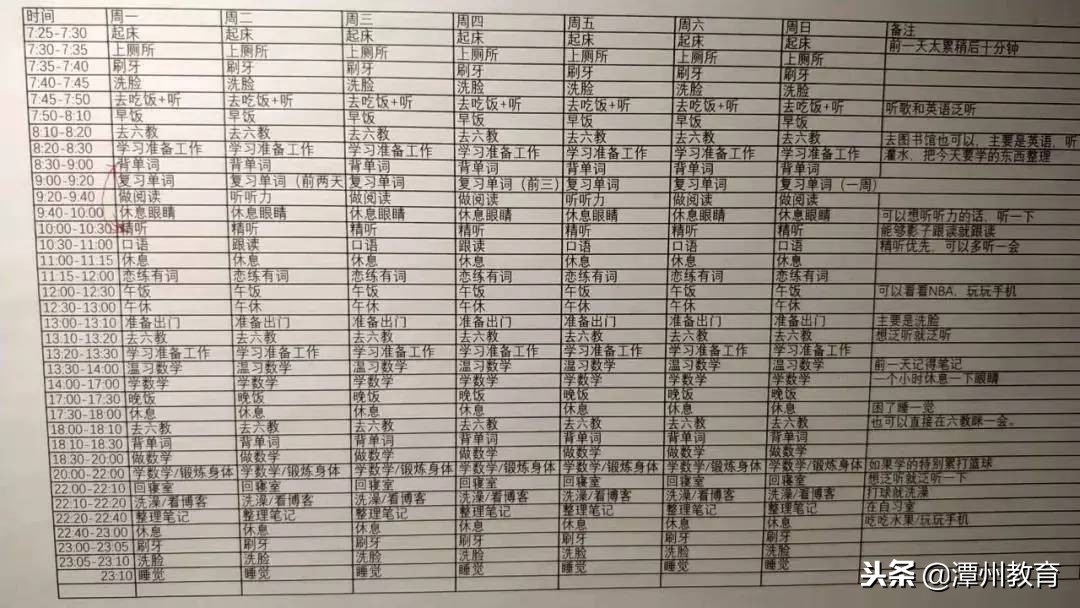 时间 周一 周二 周三 周四 周五 周六 周日 备注
7:25-7:30 起床 起床 起床 起床 起床 起床 起床 前一天太累稍后十分钟
7:30-7:35 上厕所 上厕所 上厕所 上厕所 上厕所 上厕所 上厕所
7:35-7:40 刷牙 刷牙 刷牙 刷牙 刷牙 刷牙 刷牙
7:40-7:45 洗脸 洗脸 洗脸 洗脸 洗脸 洗脸 洗脸
7:45-7:50 去吃饭+听 去吃饭+听 去吃饭+听 去吃饭+听 去吃饭+听 去吃饭+听 去吃饭+听 听歌和英语泛听
7:50-8:10 早饭 早饭 早饭 早饭 早饭 早饭 早饭
8:10-8:20 去六教 去六教 去六教 去六教 去六教 去六教 去六教 去图书馆也可以，主要是英语，听
8:20-8:30 学习准备工作 学习准备工作 学习准备工作 学习准备工作 学习准备工作 学习准备工作 学习准备工作 灌水、把今天要学的东西整理
8:30-9:00 背单词 背单词 背单词 背单词 背单词 背单词 背单词
9:00-9:20 复习单词 复习单词（前两天 复习单词 复习单词（前三） 复习单词 复习单词 复习单词（一周）
9:20-9:40 做阅读 听听力 做阅读 做阅读 听听力 做阅读 做阅读
9:40-10:00 休息眼睛 休息眼睛 休息眼睛 休息眼睛 休息眼睛 休息眼睛 休息眼睛 可以想听听力的话，听一下
10:00-10:30 精听 精听 精听 精听 精听 精听 精听 能够影子跟读就跟读
10:30-11:00 口语 跟读 口语 跟读 口语 跟读 口语 精听优先，可以多听一会
11:00-11:15 休息 休息 休息 休息 休息 休息 休息
11:15-12:00 恋练有词 恋练有词 恋练有词 恋练有词 恋练有词 恋练有词 恋练有词
12:00-12:30 午饭 午饭 午饭 午饭 午饭 午饭 午饭 可以看看NBA，玩玩手机
12:30-13:00 午休 午休 午休 午休 午休 午休 午休
13:00-13:10 准备出门 准备出门 准备出门 准备出门 准备出门 准备出门 准备出门 主要是洗脸
13:10-13:20 去六教 去六教 去六教 去六教 去六教 去六教 去六教 想泛听就泛听
13:20-13:30 学习准备工作 学习准备工作 学习准备工作 学习准备工作 学习准备工作 学习准备工作 学习准备工作
13:30-14:00 温习数学 温习数学 温习数学 温习数学 温习数学 温习数学 温习数学 前一天记得笔记
14:00-17:00 学数学 学数学 学数学 学数学 学数学 学数学 学数学 一个小时休息一下眼睛
17:00-17:30 晚饭 晚饭 晚饭 晚饭 晚饭 晚饭 晚饭
17:30-18:00 休息 休息 休息 休息 休息 休息 休息 困了睡一觉
18:00-18:10 去六教 去六教 去六教 去六教 去六教 去六教 去六教 也可以直接在六教眯一会。
18:10-18:30 背单词 背单词 背单词 背单词 背单词 背单词 背单词
18:30-20:00 做数学 做数学 做数学 做数学 做数学 做数学 做数学
20:00-22:00 学数学/锻炼身体 学数学/锻炼身体 学数学/锻炼身体 学数学/锻炼身体 学数学/锻炼身体 学数学/锻炼身体 学数学/锻炼身体 如果学的特别累打篮球
22:00-22:10 回寝室 回寝室 回寝室 回寝室 回寝室 回寝室 回寝室 想泛听就泛听一下
22:10-22:20 洗澡/看博客 洗澡/看博客 洗澡/看博客 洗澡/看博客 洗澡/看博客 洗澡/看博客 洗澡/看博客 打球就洗澡
22:20-22:40 整理笔记 整理笔记 整理笔记 整理笔记 整理笔记 整理笔记 整理笔记 在自习室
22:40-23:00 休息 休息 休息 休息 休息 休息 休息 吃吃水果/玩玩手机
23:00-23:05 刷牙 刷牙 刷牙 刷牙 刷牙 刷牙 刷牙
23:05-23:10 洗脸 洗脸 洗脸 洗脸 洗脸 洗脸 洗脸
23:10 睡觉 睡觉 睡觉 睡觉 睡觉 睡觉 睡觉
头条 @潭州教育